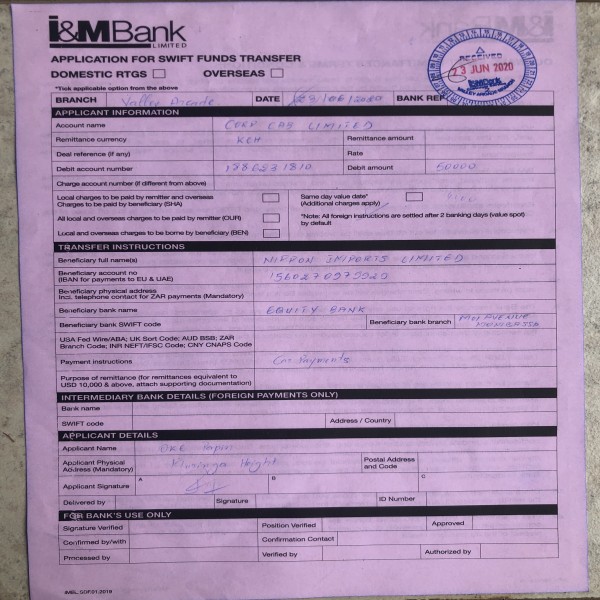 I&M Bank
LIMITED
APPLICATION FOR SWIFT FUNDS TRANSFER
DOMESTIC RTGS OVERSEAS
*Tick applicable option from the above
RECEIVED
23 JUN 2020
BRANCH Valley Arcade DATE 23/06/2020 BANK REF
APPLICANT INFORMATION
Account name LIMITED
Remittance currency Remittance amount
Deal reference (if any) Rate
Debit account number Debit amount 50000
Charge account number (if different from above)
Local charges to be paid by remitter and overseas
Charges to be paid by beneficiary (SHA)
Same day value date*
(Additional charges apply)
All local and overseas charges to be paid by remitter (OUR)
*Note: All foreign instructions are settled after 2 banking days (value spot)
by default
Local and overseas charges to be borne by beneficiary (BEN)
TRANSFER INSTRUCTIONS
Beneficiary full name(s) NIPPON IMPORTS LIMITED
Beneficiary account no
(IBAN for payments to EU & UAE)
Beneficiary physical address
Incl. telephone contact for ZAR payments (Mandatory)
Beneficiary bank name EQUITY BANK
Beneficiary bank SWIFT code Beneficiary bank branch MOI AVENUE
MOMBASA
USA Fed Wire/ABA; UK Sort Code; AUD BSB; ZAR
Branch Code; INR NEFT/IFSC Code; CNY CNAPS Code
Payment instructions Car Payments
Purpose of remittance (for remittances equivalent to
USD 10,000 & above, attach supporting documentation)
INTERMEDIARY BANK DETAILS (FOREIGN PAYMENTS ONLY)
Bank name
SWIFT code Address / Country
APPLICANT DETAILS
Applicant Name
Applicant Physical
Address (Mandatory) Height
Postal Address
and Code
Applicant Signature A B C
Delivered by Signature ID Number
FOR BANK'S USE ONLY
Signature Verified Position Verified Approved
Confirmed by/with Confirmation Contact
Processed by Verified by Authorized by
IMBL.SDF/21.2019